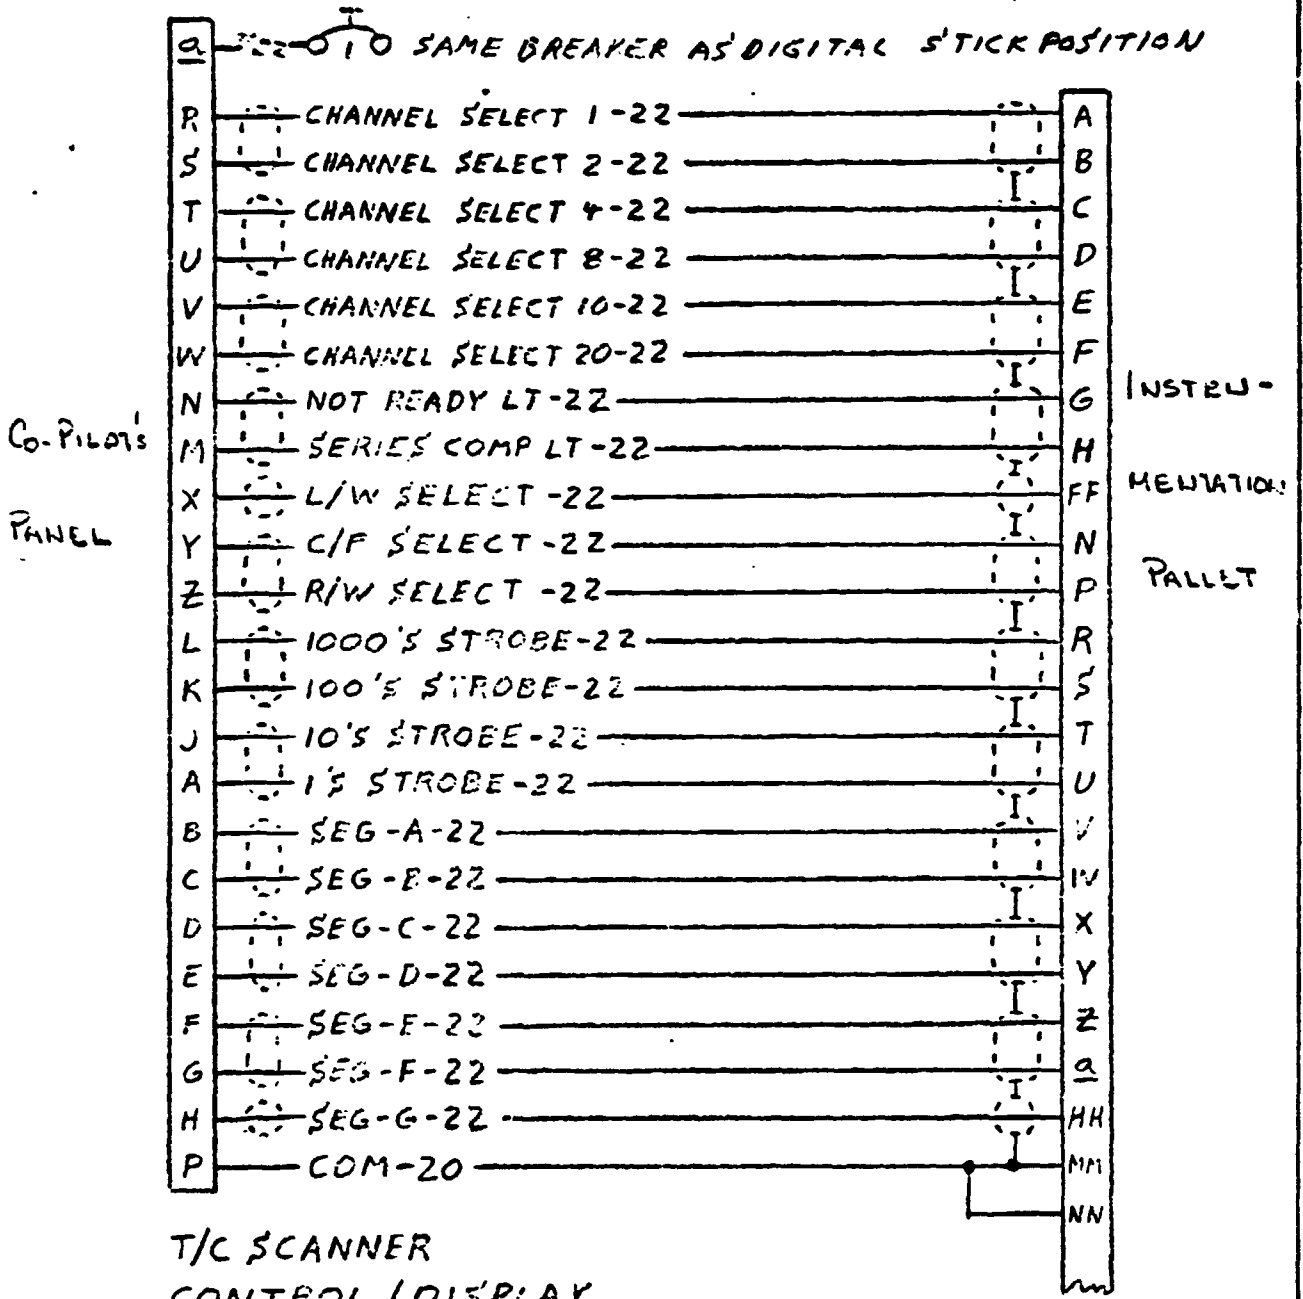 a SAME BREAKER AS DIGITAL STICK POSITION
R CHANNEL SELECT 1-22 A
S CHANNEL SELECT 2-22 B
T CHANNEL SELECT 4-22 C
U CHANNEL SELECT 8-22 D
V CHANNEL SELECT 10-22 E
W CHANNEL SELECT 20-22 F
N NOT READY LT-22 G
M SERIES COMP LT-22 H
X L/W SELECT -22 FF
Y C/F SELECT-22 N
Z R/W SELECT -22 P
L 1000'S STROBE-22 R
K 100'S STROBE-22 S
J 10'S STROBE-22 T
A 1'S STROBE-22 U
B SEG-A-22 V
C SEG-B-22 W
D SEG-C-22 X
E SEG-D-22 Y
F SEG-E-22 Z
G SEG-F-22 a
H SEG-G-22 HH
P COM-20 MM
NN
CO-PILOT'S
PANEL
INSTRU-
MENTATION
PALLET
T/C SCANNER
CONTROL / DISPLAY